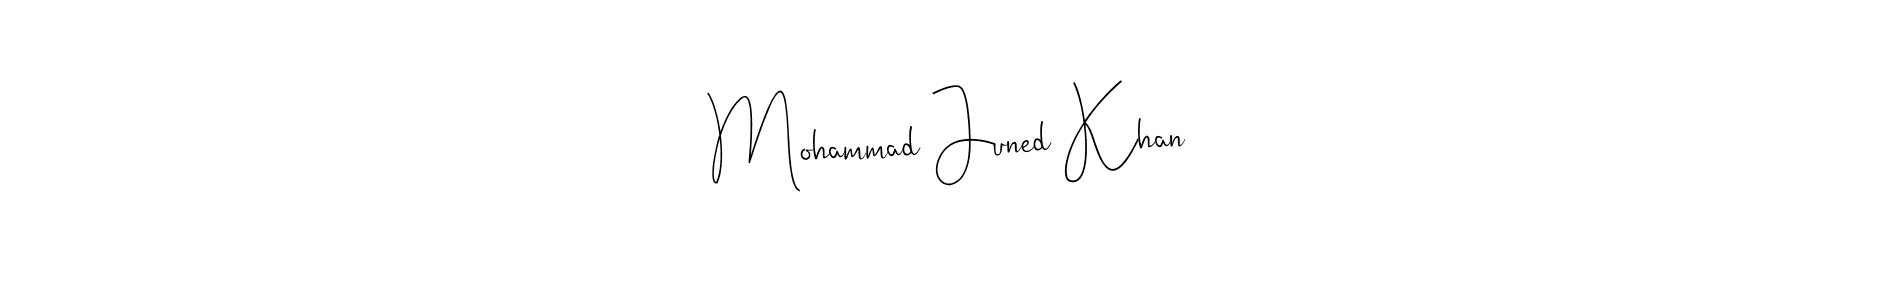 Mohammad Juned Khan